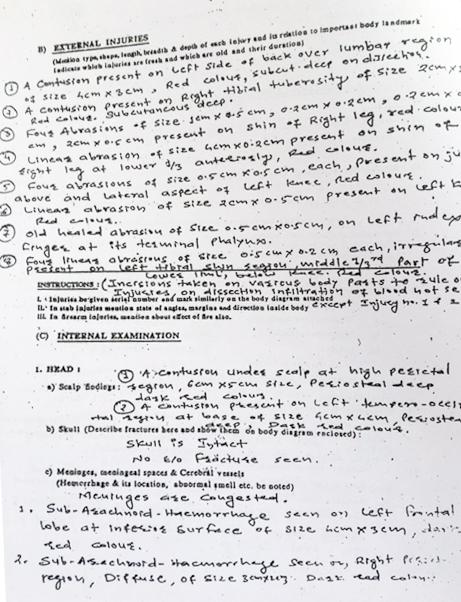 B) EXTERNAL INJURIES
(Mention type, shape, length, breadth & depth of each injury and its relation to important body landmark
Indicate which injuries are fresh and which are old and their duration)
① A Contusion present on Left Side of back over lumbar region
of size 4cm x 3cm, Red colour, subcut. deep on dissection.
② A contusion present on Right tibial tuberosity of size 2cm x
Red colour. Subcutaneous deep.
③ Four Abrasions of size 1cm x 0.5cm, 0.2cm x 0.2cm, 0.2cm x
cm, 2cm x 0.5cm present on shin of Right leg, red colour
④ Linear abrasion of size 4cm x 0.2cm present on shin of
Right leg at lower 1/3 anteriorly, Red colour.
⑤ Four abrasions of size 0.5cm x 0.5cm, each, present on
above and lateral aspect of Left knee, Red colour.
⑥ Linear abrasion of size 2cm x 0.5cm present on left k
Red colour.
⑦ Old healed abrasion of size 0.5cm x 0.5cm, on left index
finger at its terminal phalynx.
⑧ Four linear abrasions of size 0.5cm x 0.2cm each, irregular
present on left tibial shin region, middle 2/3rd part of
Lower limb below knee. Red colour.
INSTRUCTIONS: (Incisions taken on various body parts to rule o
Injuries, on dissection infiltration of blood not se
I. Injuries be given serial number and mark similarly on the body diagram attached except Injury no. 1 & 2
II. In stab injuries mention state of angles, margins and direction inside body
III. In firearm injuries, mention about effect of fire also.
(C) INTERNAL EXAMINATION
1. HEAD : ① A contusion under scalp at high parietal
a) Scalp findings: region, 6cm x 5cm size, Periosteal deep
dark red colour.
② A contusion present on Left tempero-occi
tal region at base of size 4cm x 4cm, Perioste
deep, Dark red colour.
b) Skull (Describe fractures here and show them on body diagram enclosed) :
Skull is Intact
No E/O Fracture seen.
c) Meninges, meningeal spaces & Cerebral vessels
(Hemorrhage & its location, abnormal smell etc. be noted)
Meninges are Congested.
1. Sub-Arachnoid-Haemorrhage seen on Left frontal
lobe at inferior surface of size 4cm x 3cm, dark
red colour.
2. Sub-Arachnoid-Haemorrhage seen on Right
region, Diffuse, of size Dark red colour